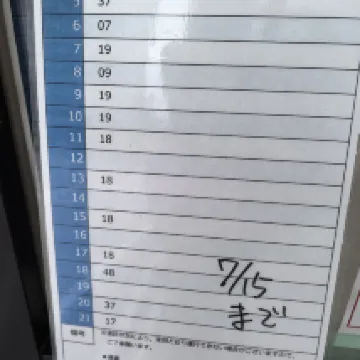 5 37
6 07
7 19
8 09
9 19
10 19
11 18
12
13 18
14
15 18
16
17 18
18 48
19
20 37
21 17
7/15
まで
備考